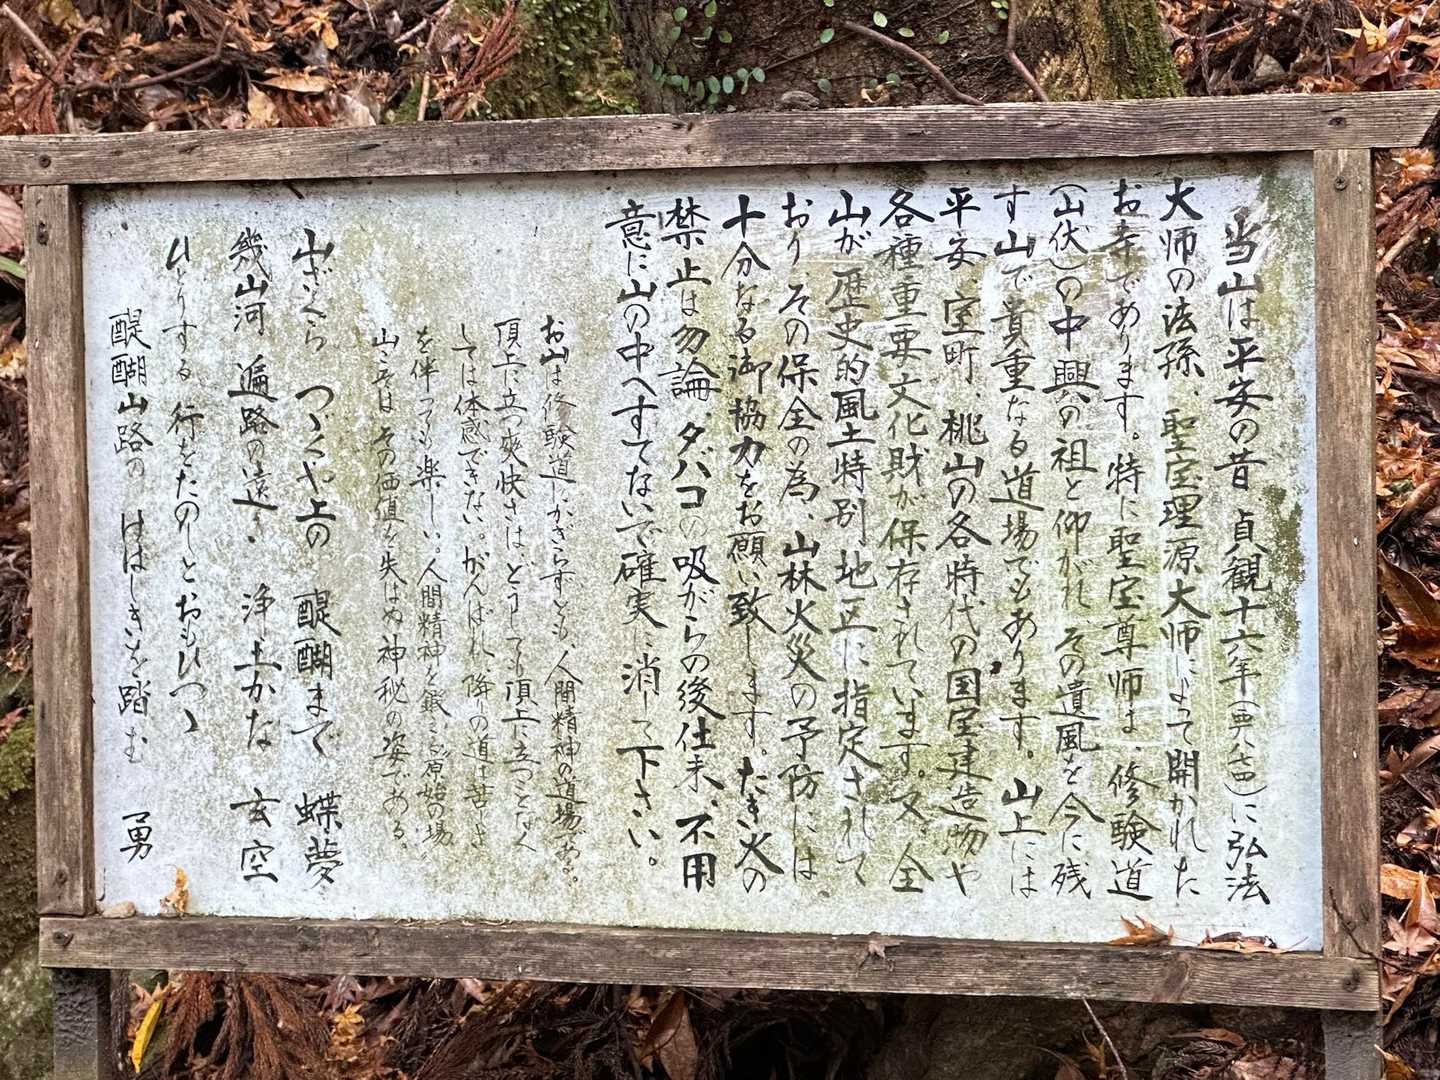 当山は平安の昔 貞観十六年(西八七四)に弘法
大師の法孫、聖宝理源大師によって開かれた
お寺であります。特に聖宝尊師は、修験道
(山伏)の中興の祖と仰がれ、その遺風を今に残
す山で貴重なる道場でもあります。山上には
平安、室町、桃山の各時代の国宝建造物や
各種重要文化財が保存されています。又、全
山が歴史的風土特別地区に指定されて
おり、その保全の為、山林火災の予防には、
十分なる御協力をお願い致します。たき火の
禁止は勿論、タバコの吸がらの後仕末、不用
意に山の中へすてないで確実に消して下さい。
お山は修験道にかぎらずとも、人間精神の道場である。
頂上に立つ爽快さは、どうしても頂上に立つことなく
しては体感できない。がんばれ、降りの道は苦しさ
を伴っても楽しい。人間精神を鍛える原始の場
山こそは その価値を失はぬ神秘の姿である。
山ざくら つゞくや上の 醍醐まで 蝶夢
幾山河 遍路の遠く 浄土かな 玄空
ひとりする 行をたのしとおもひつゝ
醍醐山路の けはしきを踏む 勇